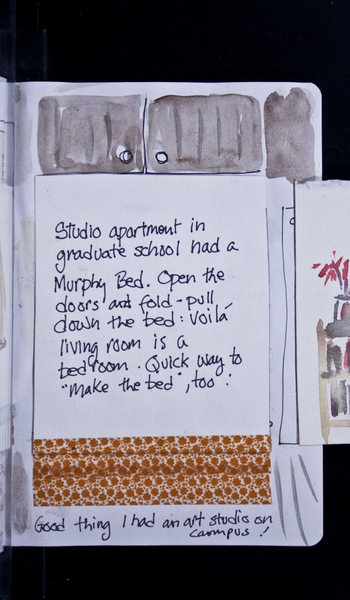 Studio apartment in
graduate school had a
Murphy Bed. Open the
doors and fold-pull
down the bed: Voilá
living room is a
bedroom. Quick way to
"make the bed", too!
Good thing I had an art studio on
campus!